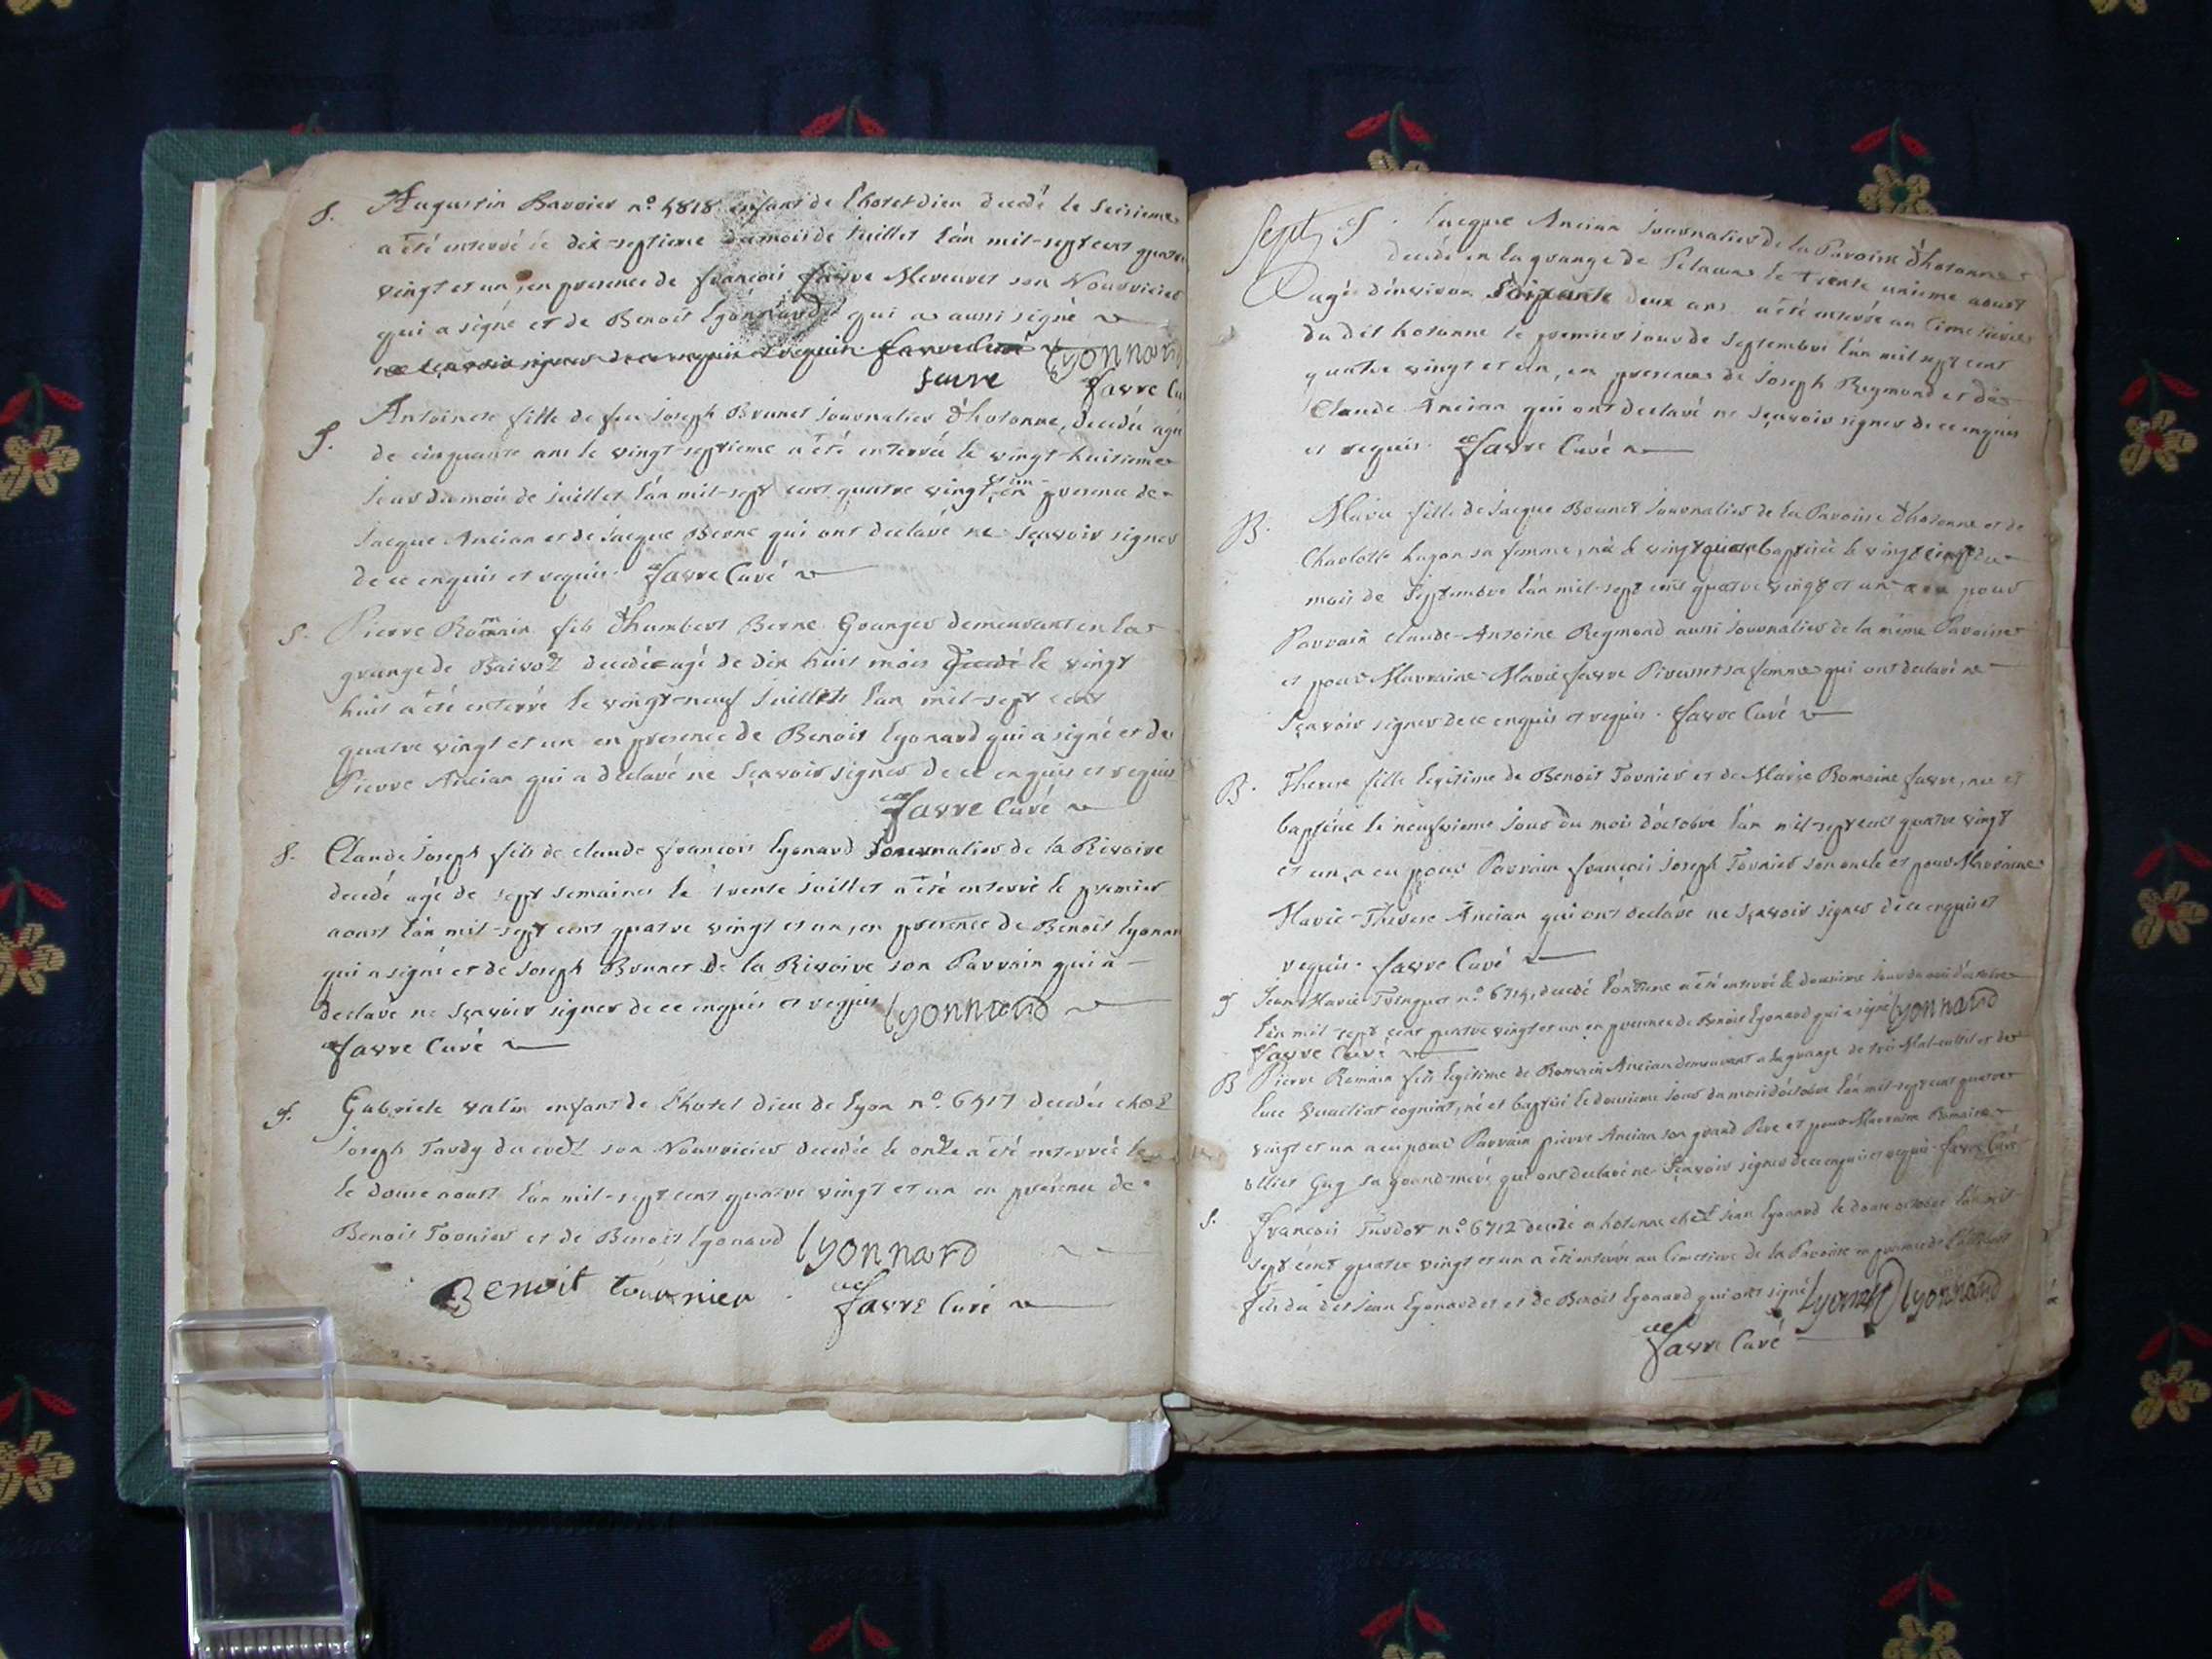 S. Augustin Bavvier n.o 4818 enfant de l'hotel dieu decedé le seisieme
a été enterré le dix-septieme du mois de juillet l'an mil-sept cent quatre
vingt et un, en presence de françois favre Meveuret son Nourricier
qui a signé et de Benoit lyonnard qui a aussi signé
de ce enquis et requis. favre Curé lyonnard
favre favre Cu
S. Antoinete fille de feu joseph Brunet journalier d'hotonne, decedée agée
de cinquante ans le vingt-septieme a été enterrée le vingt-huitieme
jour du mois de juillet l'an mil-sept cent quatre vingt et un en presence de
jacque Ancian et de jacque Berne qui ont declaré ne sçavoir signer
de ce enquis et requis. favre Curé
S. Pierre Romain fils d'humbert Berne Granger demeurant en la
grange de decedé agé de dix huit mois decedé le vingt
huit a été enterré le vingt-neuf juillet l'an mil-sept cent
quatre vingt et un en presence de Benoit lyonard qui a signé et de
Pierre Ancian qui a declaré ne sçavoir signer de ce enquis et requis
favre Curé
S. Claude joseph fils de claude françois lyonard journalier de la Rivoire
decedé agé de sept semaines le trente juillet a été enterré le premier
aoust l'an mil-sept cent quatre vingt et un, en presence de Benoit lyonar
qui a signé et de joseph Brunet de la Rivoire son Parrain qui a
declaré ne sçavoir signer de ce enquis et requis lyonnard
favre Curé
S. Gabriele valin enfant de l'hotel dieu de lyon n.o 6417 decedée chez
joseph Tardy du son Nourricier decedée le onze a été enterrée le
le douze aoust l'an mil-sept cent quatre vingt et un en presence de
Benoit Tornier et de Benoit lyonard lyonnard
Benoit tournier favre Curé
Sept. S. jacque Ancian journalier de la Paroisse d'hotonne
decedé en la grange de le trente unieme aoust
agé d'environ soixante deux ans a été enterré au Cimetiere
du dit hotonne le premier jour de septembre l'an mil sept cent
quatre vingt et un, en presence de joseph Reymond et de
Claude Ancian qui ont declaré ne sçavoir signer de ce enquis
et requis. favre Curé
B. Marie fille de jacque Brunet journalier de la Paroisse d'hotonne et de
Charlotte hugon sa femme, née le vingt quatre baptisée le vingt cinq du
mois de septembre l'an mil-sept cent quatre vingt et un a eu pour
Parrain claude-Antoine Reymond aussi journalier de la même Paroisse
et pour Marraine Marie favre sa femme qui ont declaré ne
sçavoir signer de ce enquis et requis. favre Curé
B. Therese fille legitime de Benoit Tornier et de Marie Romaine favre, née et
baptisée le neufvieme jour du mois d'octobre l'an mil-sept cent quatre vingt
et un, a eu pour Parrain françois joseph Tornier son oncle et pour Marraine
Marie-Therese Ancian qui ont declaré ne sçavoir signer de ce enquis et
requis. favre Curé
S jean Marie n.o 6714, decedé l'onzieme a été enterré le douzieme jour du mois d'octobre
l'an mil sept cent quatre vingt et un en presence de Benoit lyonard qui a signé lyonnard
favre Curé
B Pierre Romain fils legitime de Romain Ancian demeurant a la grange de et de
Luce cogniat, né et baptisé le douzieme jour du mois d'octobre l'an mil-sept cent quatre
vingt et un a eu pour Parrain pierre Ancian son grand Pere et pour Marraine Romaine
Gug sa grand-mere qui ont declaré ne sçavoir signer de ce enquis et requis. favre Curé
S. françois n.o 6712 decedé a hotonne chez jean lyonard le douze octobre l'an mil
sept cent quatre vingt et un a été enterré au Cimetiere de la Paroisse en presence de
fils du dit jean lyonard et et de Benoit lyonard qui ont signé lyonnard lyonnard
favre Curé